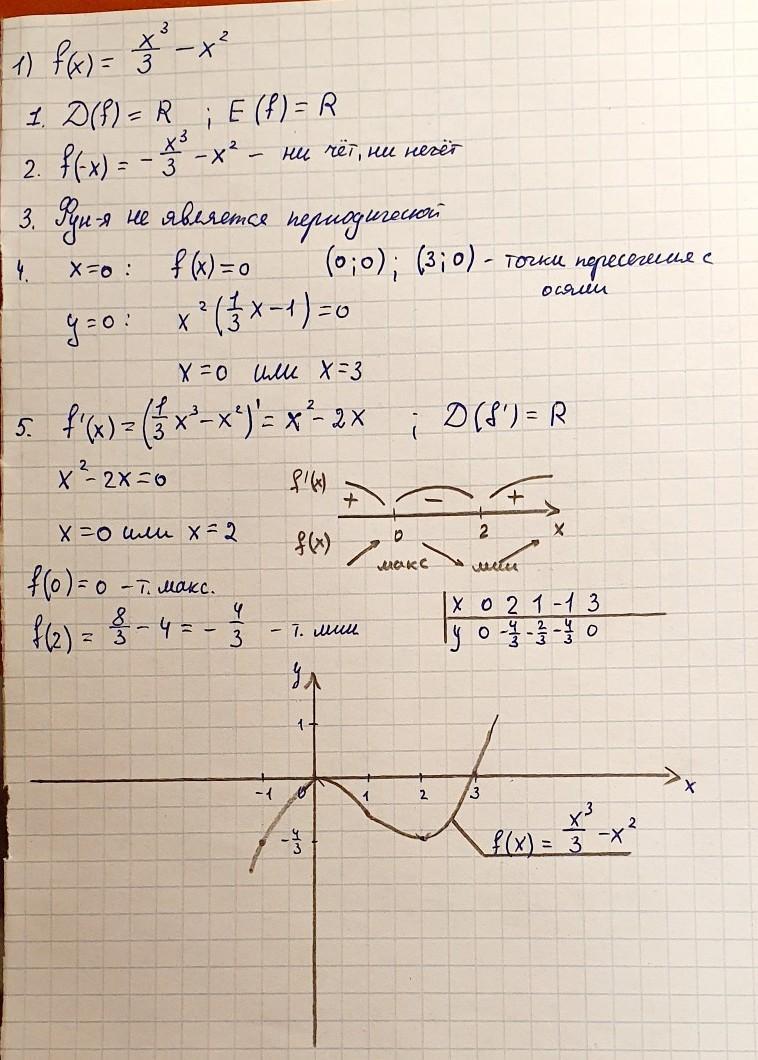 1) f(x) = x³/3 - x²
1. D(f) = R ; E(f) = R
2. f(-x) = -x³/3 - x² - ни чёт, ни нечёт
3. Фун-я не является периодической
4. x=0: f(x)=0 (0;0); (3;0) - точки пересечения с
осями
y=0: x²(1/3 x - 1) = 0
x=0 или x=3
5. f'(x) = (1/3 x³ - x²)' = x² - 2x ; D(f') = R
x² - 2x = 0
f'(x) + - +
x=0 или x=2
0 2 x
f(x) макс мин
f(0) = 0 - т. макс.
f(2) = 8/3 - 4 = - 4/3 - т. мин
x 0 2 1 -1 3
y 0 -4/3 -2/3 -4/3 0
y
1
-1 0 1 2 3 x
-4/3
f(x) = x³/3 - x²